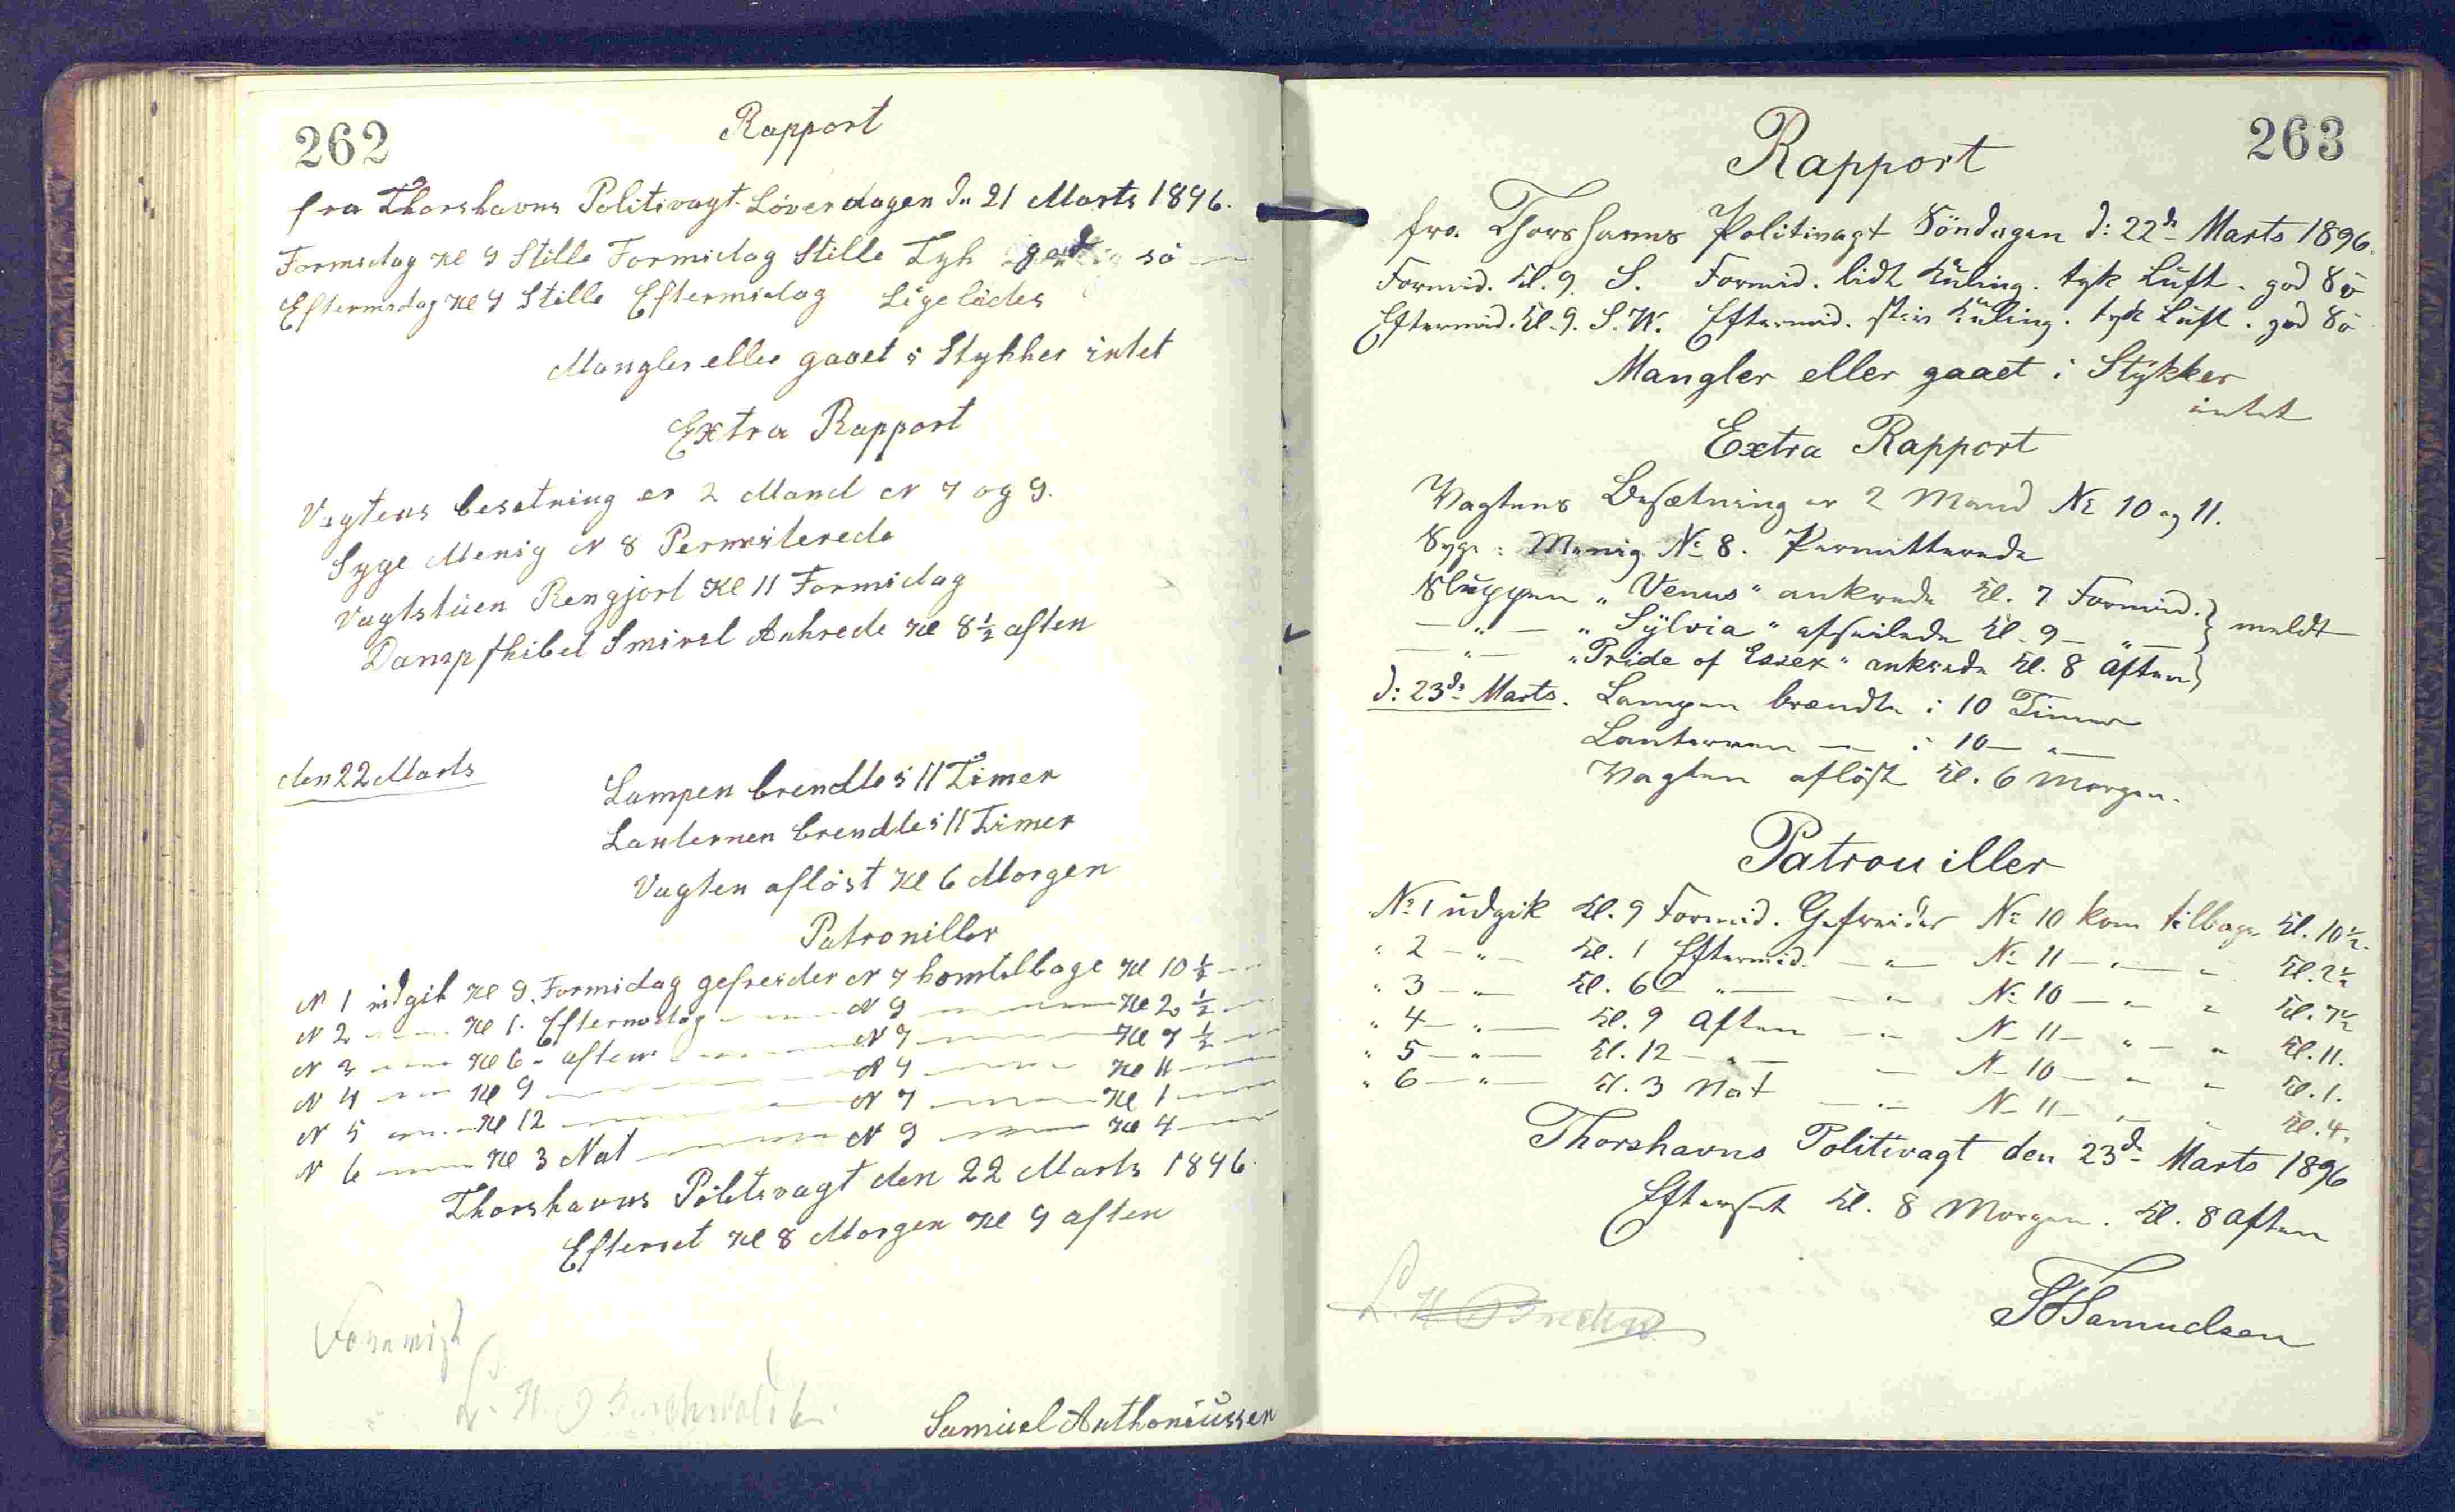 262
Rapport
fra Thorshavns Politivagt Löverdagen d. 21 Marts 1896.
Formidag Kl 9 Stille Formidag Stille Tyk god sö
Eftermidag Kl 9 Stille Eftermidag Ligeledes
Mangler eller gaaet i Stykker intet
Extra Rapport
Vagtens besetning er 2 Mand N 7 og 9.
Syge Menig N 8 Permiterede
Vagtstüen Rengjort Kl 11 Formidag
Dampskibet Smiril Ankrede Kl 8½ aften
den 22 Marts
Lampen brendte i 11 Timer
Lanternen brendte i 11 Timer
Vagten aflöst Kl 6 Morgen
Patrouiller
N 1 üdgik Kl 9. Formidag gefreider N 7 kom tilbage Kl 10½
N 2 — Kl 1. Eftermidag — N 9 — Kl 2½
N 3 — Kl 6 - aften — N 7 — Kl 7½
N 4 — Kl 9 — N 9 — Kl 11
N 5 — Kl 12 — N 7 — Kl 1
N 6 — Kl 3 Nat — N 9 — Kl 4
Thorshavns Politivagt den 22 Marts 1896.
Efterset Kl 8 Morgen Kl 9 aften
Samüel Anthoniüssen
263
Rapport
fra Thorshavns Politivagt Söndagen d: 22de Marts 1896.
Formid. Kl. 9. S. Formid. lidt Küling. tyk Lüft. god Sö
Eftermid. Kl. 9. S.V. Eftermid. stiv Küling. tyk Lüft. god Sö
Mangler eller gaaet i Stÿkker
intet
Extra Rapport
Vagtens Besætning er 2 Mand No 10 og 11.
Syge: Menig No 8. Permitterede
Slüppen „Venus" ankrede Kl. 7 Formid. } meldt
— „ — „Sÿlvia" afseilede Kl. 9 — „ —
— „ — „Pride of Essex" ankrede Kl. 8 Aften
d: 23de Marts. Lampen brændte i 10 Timer
Lanternen — i 10 — „ —
Vagten aflöst Kl. 6 Morgen.
Patrouiller
No 1 üdgik Kl. 9 Formid. Gefreider No 10 kom tilbage Kl. 10½.
„ 2 — „ — Kl. 1 Eftermid. — „ — No 11 — „ — „ Kl. 2½
„ 3 — „ — Kl. 6 — „ — — „ — No 10 — „ — „ Kl. 7½
„ 4 — „ — Kl. 9 Aften — „ — N— 11 — „ — „ Kl. 11.
„ 5 — „ — Kl. 12 — „ — — N— 10 — „ — „ Kl. 1.
„ 6 — „ — Kl. 3 Nat — „ — N— 11 — „ — Kl. 4.
Thorshavns Politivagt den 23de Marts 1896
Efterset Kl. 8 Morgen. Kl. 8 Aften
Samuelsen